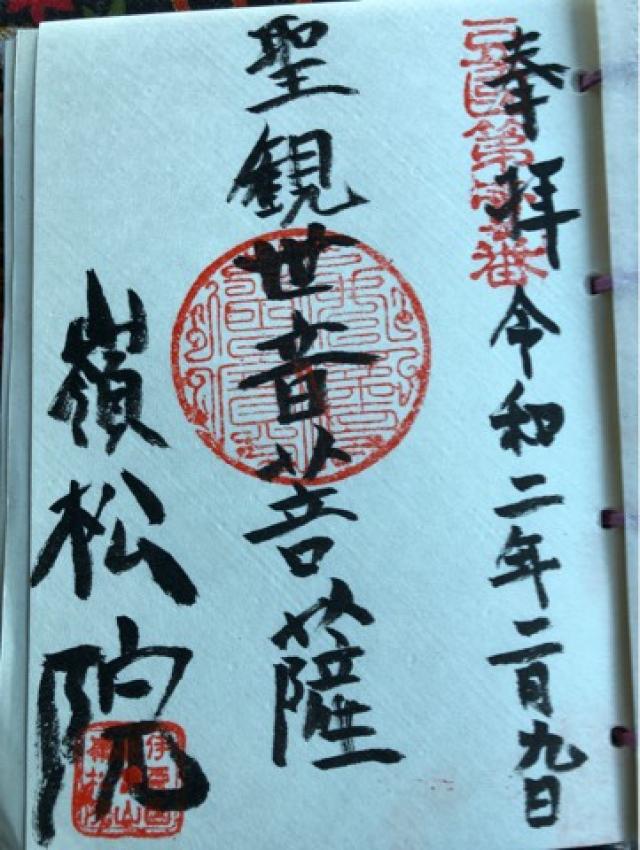 奉拝 令和二年二月九日
第 番
聖観世音菩薩
嶺松院